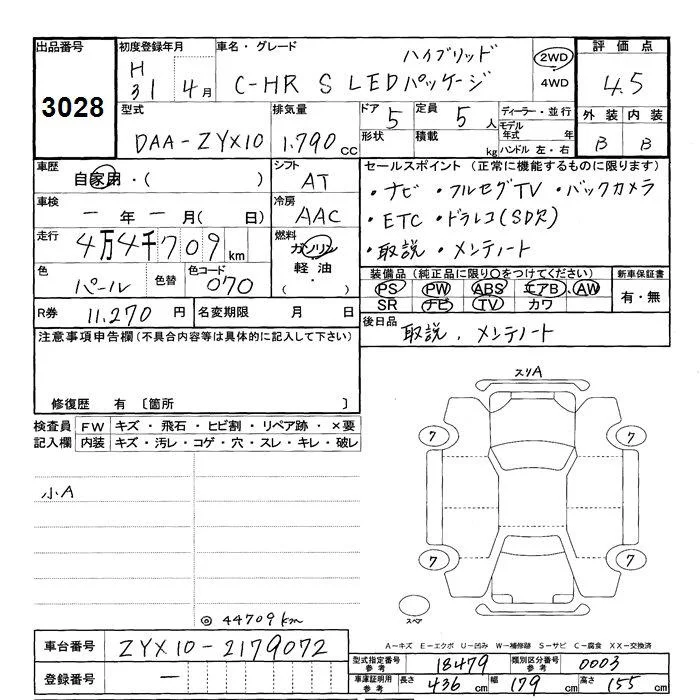 出品番号
3028
初度登録年月
H
31 4月
車名・グレード
ハイブリッド
C-HR S LEDパッケージ
2WD
4WD
評価点
4.5
外装 内装
B B
型式
DAA-ZYX10
排気量
1,790cc
ドア 5
定員 5人
形状
積載 kg
ディーラー・並行
モデル年式 年
ハンドル 左・右
車歴
自家用・( )
シフト
AT
車検
ー年ー月(日)
冷房
AAC
走行
4万4千709km
燃料
ガソリン
軽油・
( )
色
パール
色替
色コード
070
R券 11,270円
名変期限 月 日
セールスポイント(正常に機能するものに限ります)
・ナビ・フルセグTV・バックカメラ
・ETC・ドラレコ(SDR)
・取説・メンテノート
装備品(純正品に限り○をつけてください)
PS PW ABS エアB AW
SR ナビ TV カワ
新車保証書
有・無
後日品
取説、メンテノート
注意事項申告欄(不具合内容等は具体的に記入して下さい)
修復歴 有 〔箇所 〕
検査員記入欄
FW キズ・飛石・ヒビ割・リペア跡・×要
内装 キズ・汚レ・コゲ・穴・スレ・キレ・破レ
小A
◎44709km
スリA
7
7
7
7
スペア
A-キズ E-エクボ U-凹み W-補修跡 S-サビ C-腐食 XX-交換済
車台番号 ZYX10-2179072
登録番号 ー
型式指定番号参考 18479
類別区分番号参考 0003
車庫証明用参考 長さ 436cm 幅 179cm 高さ 155cm